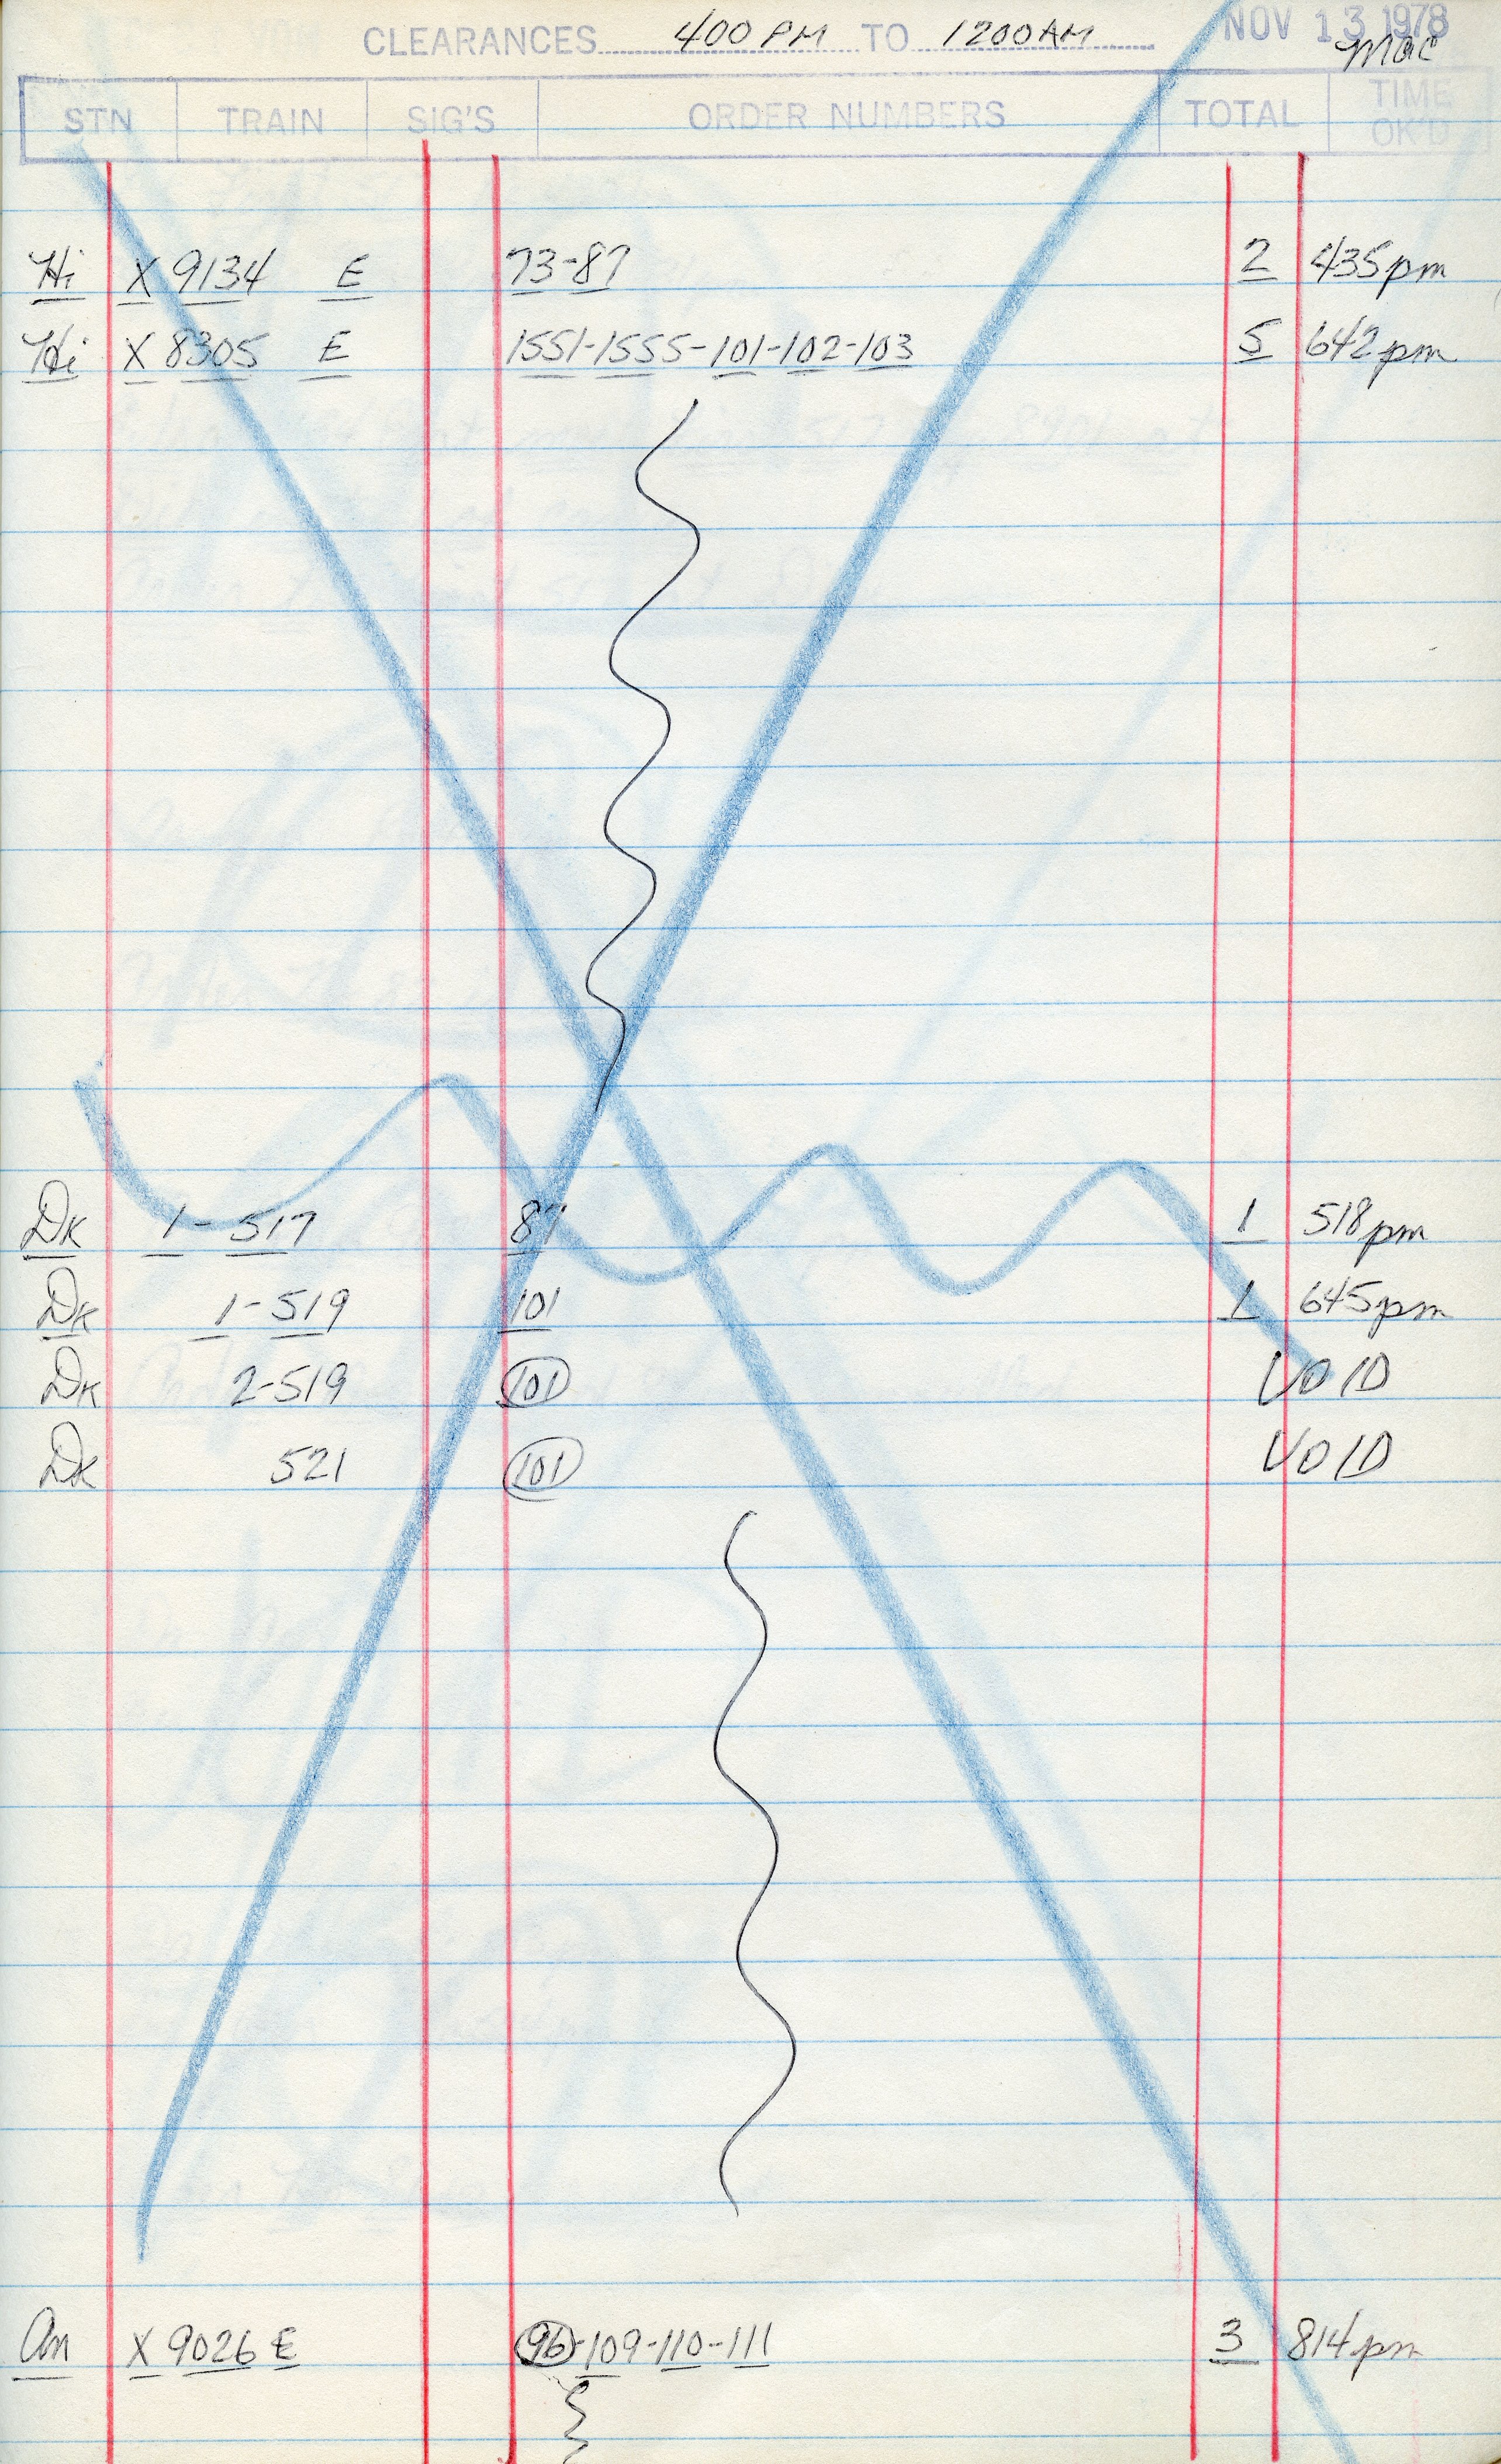 CLEARANCES 400 PM TO 1200 AM NOV 13 1978
Mac
STN TRAIN SIG'S ORDER NUMBERS TOTAL TIME OK'D
Hi X 9134 E 73-87 2 435pm
Hi X 8305 E 1551-1555-101-102-103 5 642pm
Dk 1-517 87 1 518pm
Dk 1-519 101 1 645pm
Dk 2-519 101 VOID
Dk 521 101 VOID
An X 9026 E 96-109-110-111 3 814pm